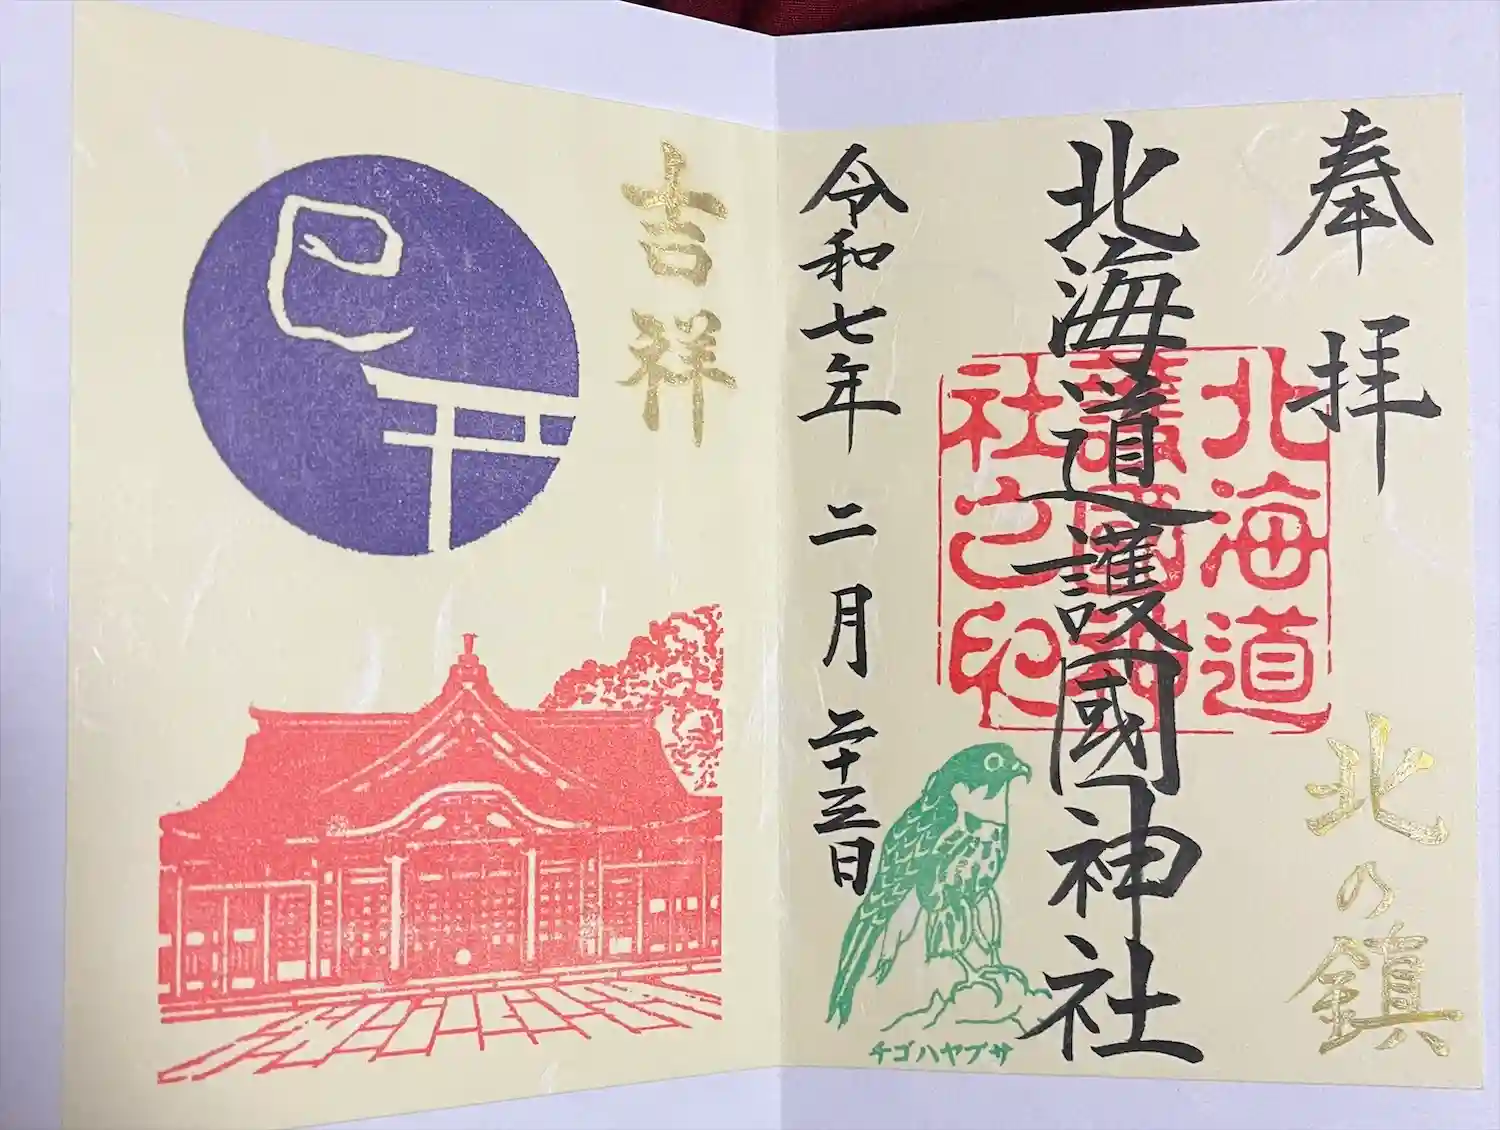 奉拝
北の鎮
北海道護國神社
北海道
護國神
社之印
令和七年 二月 二十三日
チゴハヤブサ
吉祥
巳